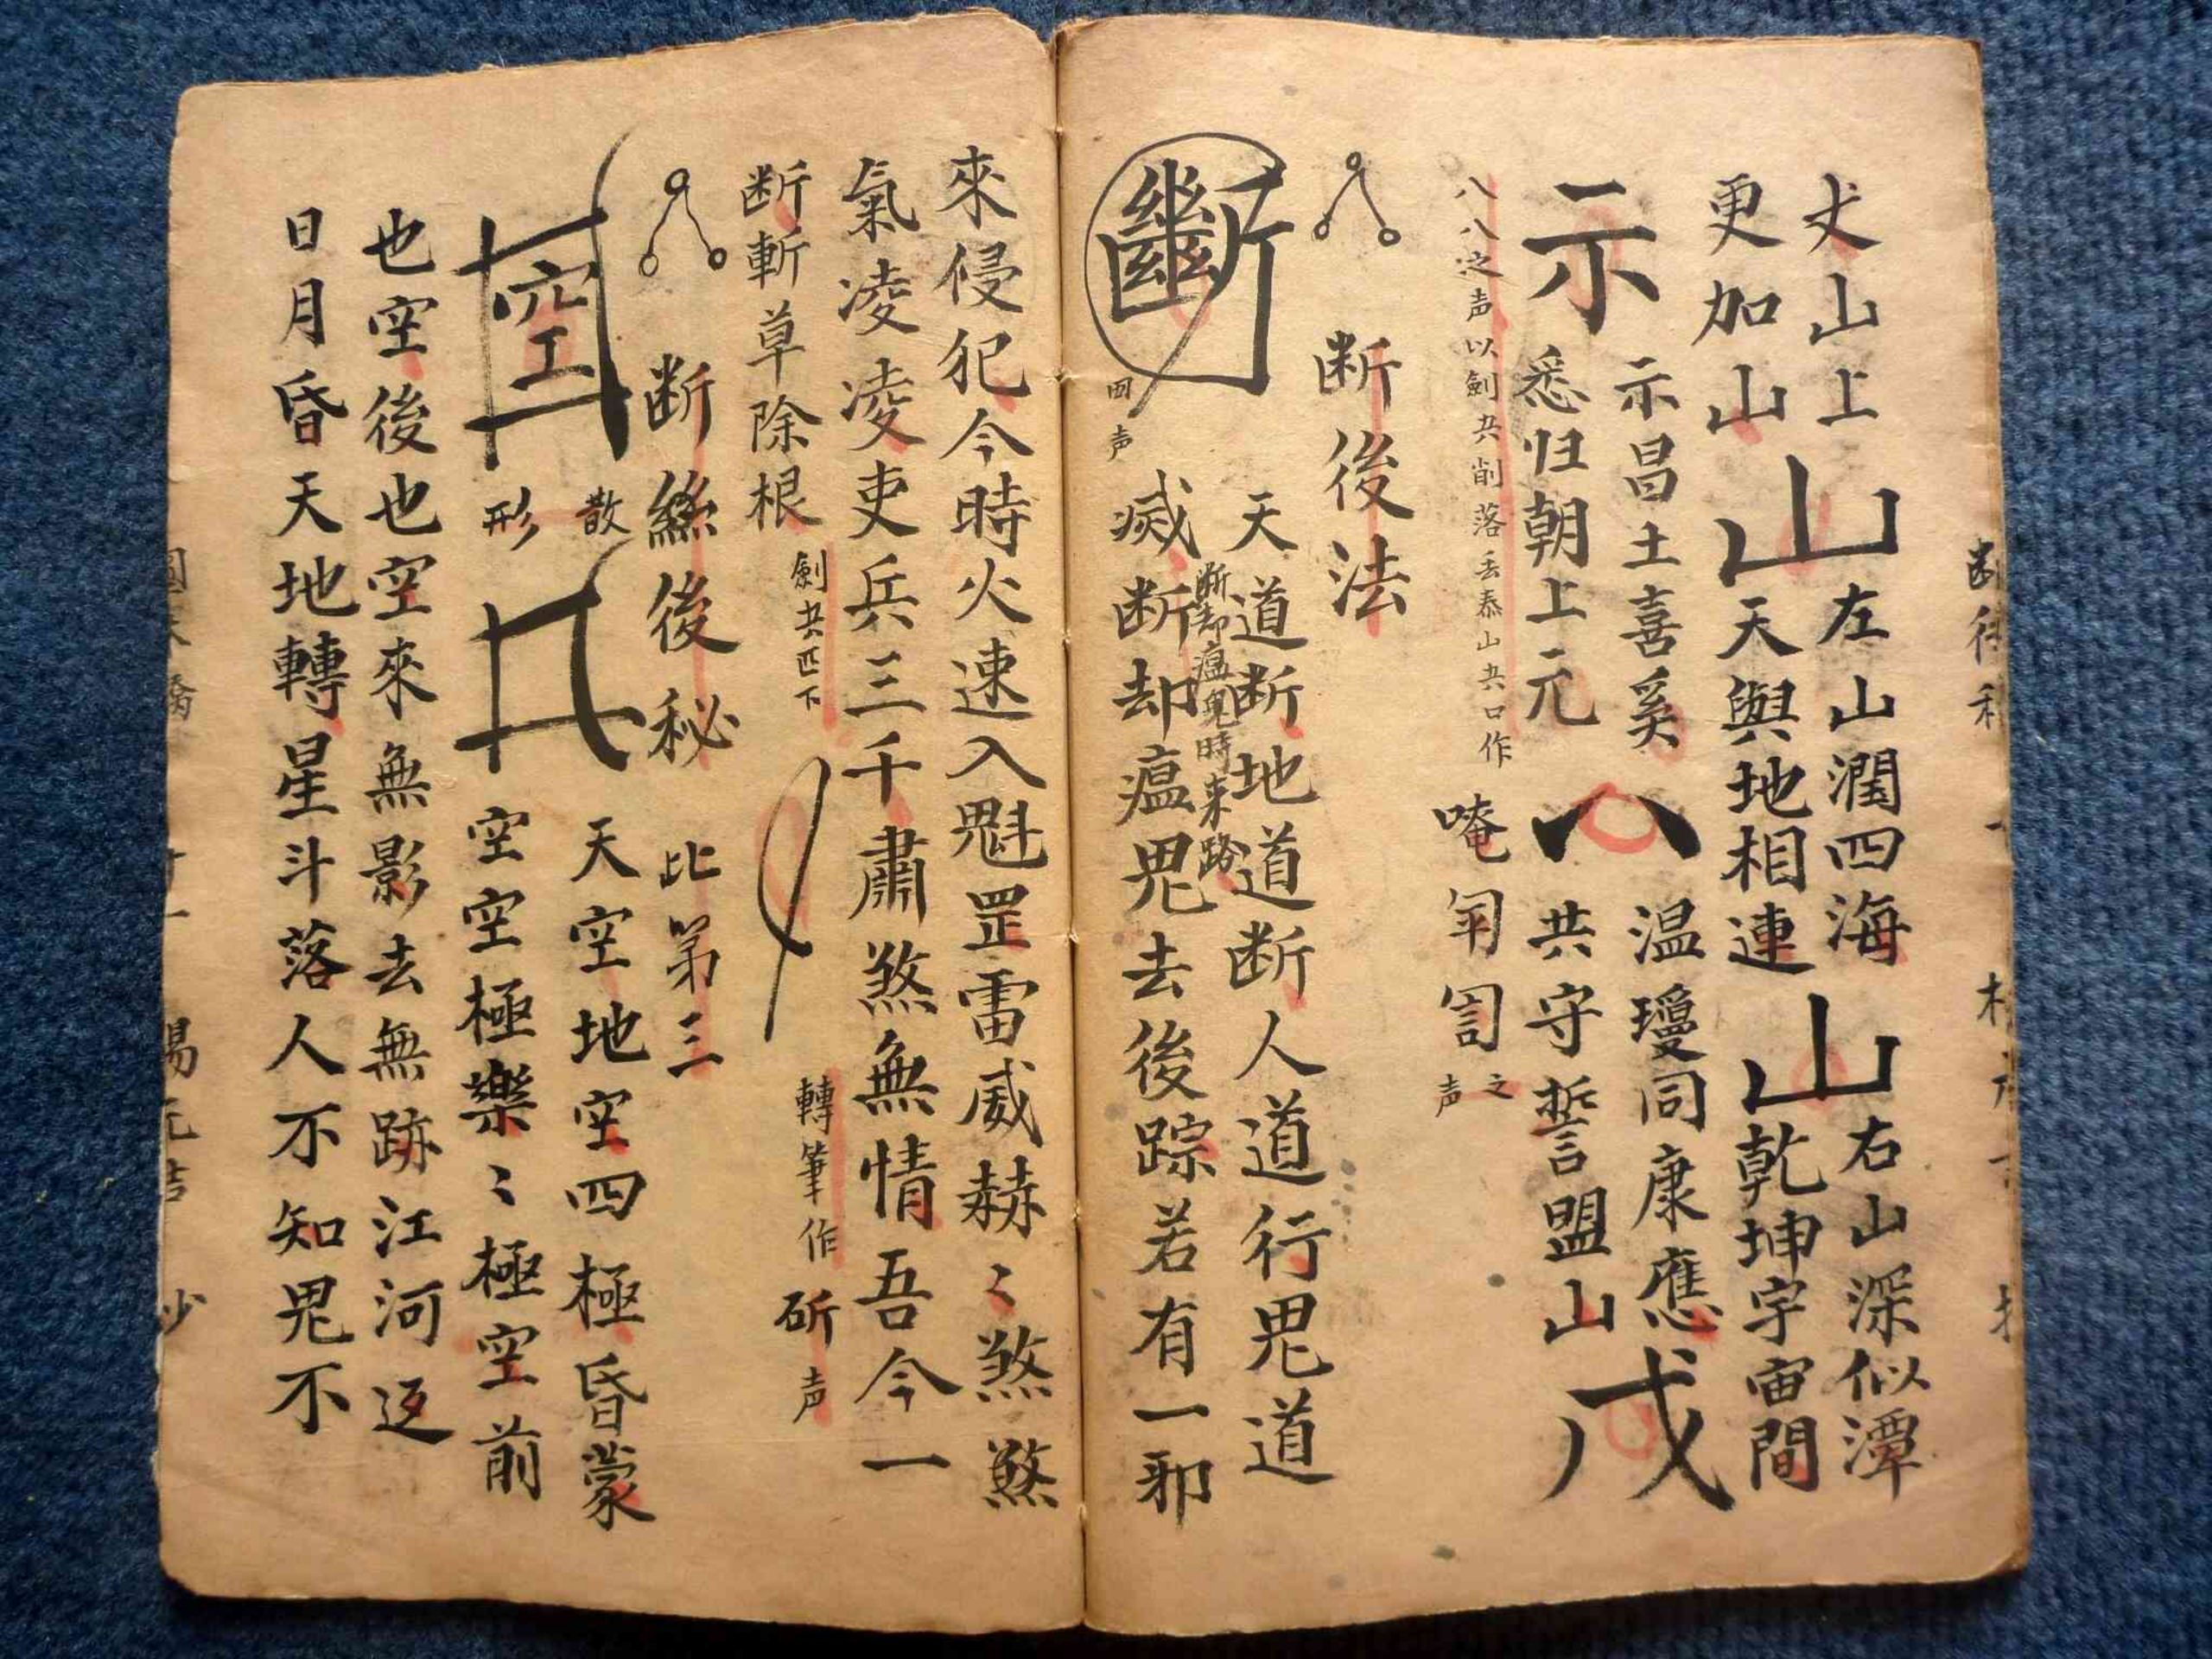 丈山上
山
左山潤四海
山
右山深似潭
更加山
天與地相連
乾坤宇宙間
示
示昌土喜奚
悉归朝上元
八
温瓊同康應
共守誓盟山
戍
八八之声以劍共削落丢泰山共口作
唵
之声
断後法
斷
囬声
天道断地道断人道行鬼道
断却瘟鬼時来路
滅断却瘟鬼去後踪若有一邪
來侵犯今時火速入魁罡雷威赫〻煞煞
氣凌凌吏兵三千肅煞無情吾今一
断斬草除根
劍共匹下
轉筆作
斫声
断絲後秘
比第三
空
散形
天空地空四極昏蒙
空空極樂〻極空前
也空後也空來無影去無跡江河逆
日月昏天地轉星斗落人不知鬼不